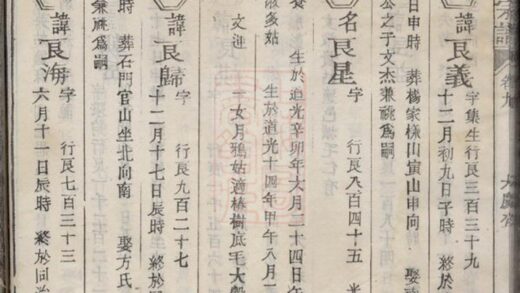 宗譜 卷九
諱艮義 字集生行艮三百三十九
十二月初九日子時 終於
日申時 葬楊家樣山寅山申向 娶
公之子文杰兼祧爲嗣
名艮星 字 行艮八百四十五
生於道光辛卯年六月二十四日午
生於道光十四年甲午八月一
文迎
二女月鴉姑適樁樹底毛大
諱艮歸 字 行艮九百二十七
十二月十七日辰時 終於同
葬石門官山坐北向南 娶方氏
兼祧爲嗣
諱艮海 字 行艮七百三十三
六月十一日辰時 終於同治